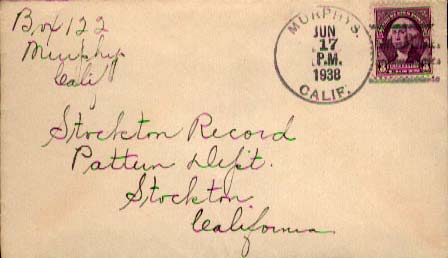 Box 122
Murphys
Calif
MURPHYS.
JUN
17
P.M.
1938
CALIF.
3
3
Stockton Record
Pattern Dept.
Stockton
California